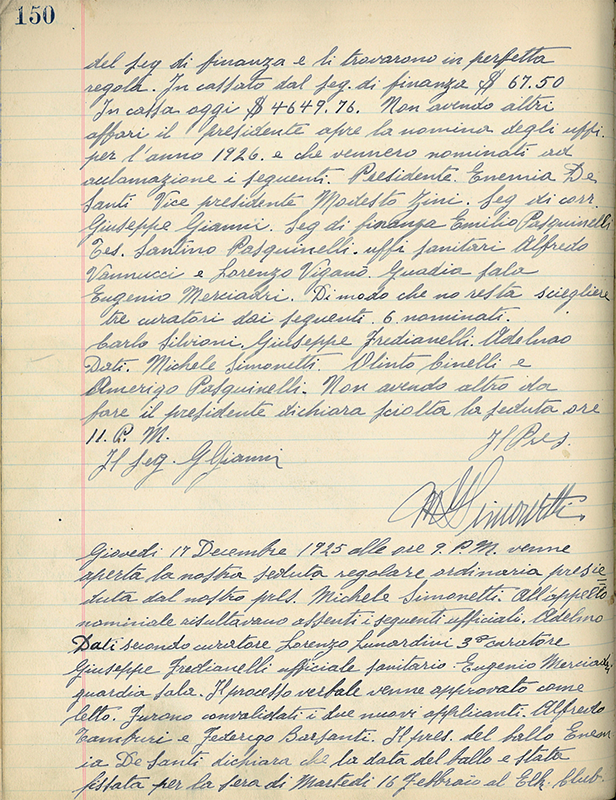 150
del seg di finanza e li trovarono in perfetta
regola. In cassato dal seg. di finanza $ 67.50
In cassa oggi $ 4649.76. Non avendo altri
affari il presidente apre la nomina degli uffi.
per l'anno 1926. e che vennero nominati ad
aclamazione i seguenti. Presidente. Enemia De
Santi Vice presidente Modesto Zini. Seg di corr.
Giuseppe Gianni. Seg di finanza Emilio Pasquinelli
Tes. Santino Pasquinelli. uffi sanitari Alfredo
Vannucci e Lorenzo Viganò. Guadia sala
Eugenio Merciadri. Di modo che no resta sciegliere
tre curatori dai seguenti. 6 nominati.
Carlo Silvioni. Giuseppe Fredianelli. Adelmo
Dati. Michele Simonetti. Olinto Cinelli e
Amerigo Pasquinelli. Non avendo altro da
fare il presidente dichiara sciolta la seduta ore
11. P. M. Il Pres.
Il seg. G Gianni
M Simonetti
Giovedi 17 Decembre 1925 alle ore 9. P. M. venne
aperta la nostra seduta regolare ordinaria presie=
duta dal nostro pres. Michele Simonetti. All'appello
nominale risultavano assenti i seguenti ufficiali. Adelmo
Dati secondo curatore Lorenzo Lunardini 3zo curatore
Giuseppe Fredianelli ufficiale sanitario Eugenio Merciadri
guardia sala. Il processo verbale venne approvato come
letto. Furono convalidati i due nuovi applicanti. Alfredo
Tamburi e Federigo Barsanti. Il pres. del ballo Enem
ia De Santi dichiara che la data del ballo e stata
fissata per la sera di Martedi 16 Febbraio al Elk. Club